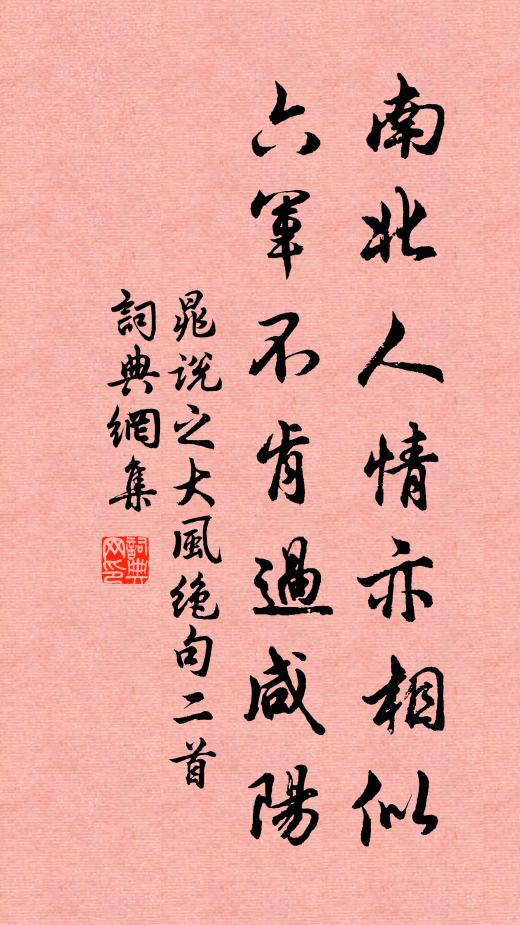 南北人情亦相似
六軍不肯過咸陽
晁説之大風绝句二首
詞典網集
詞典网印